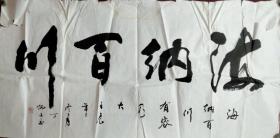 海纳百川
海
纳百
川
有容
乃
大
壬辰
年